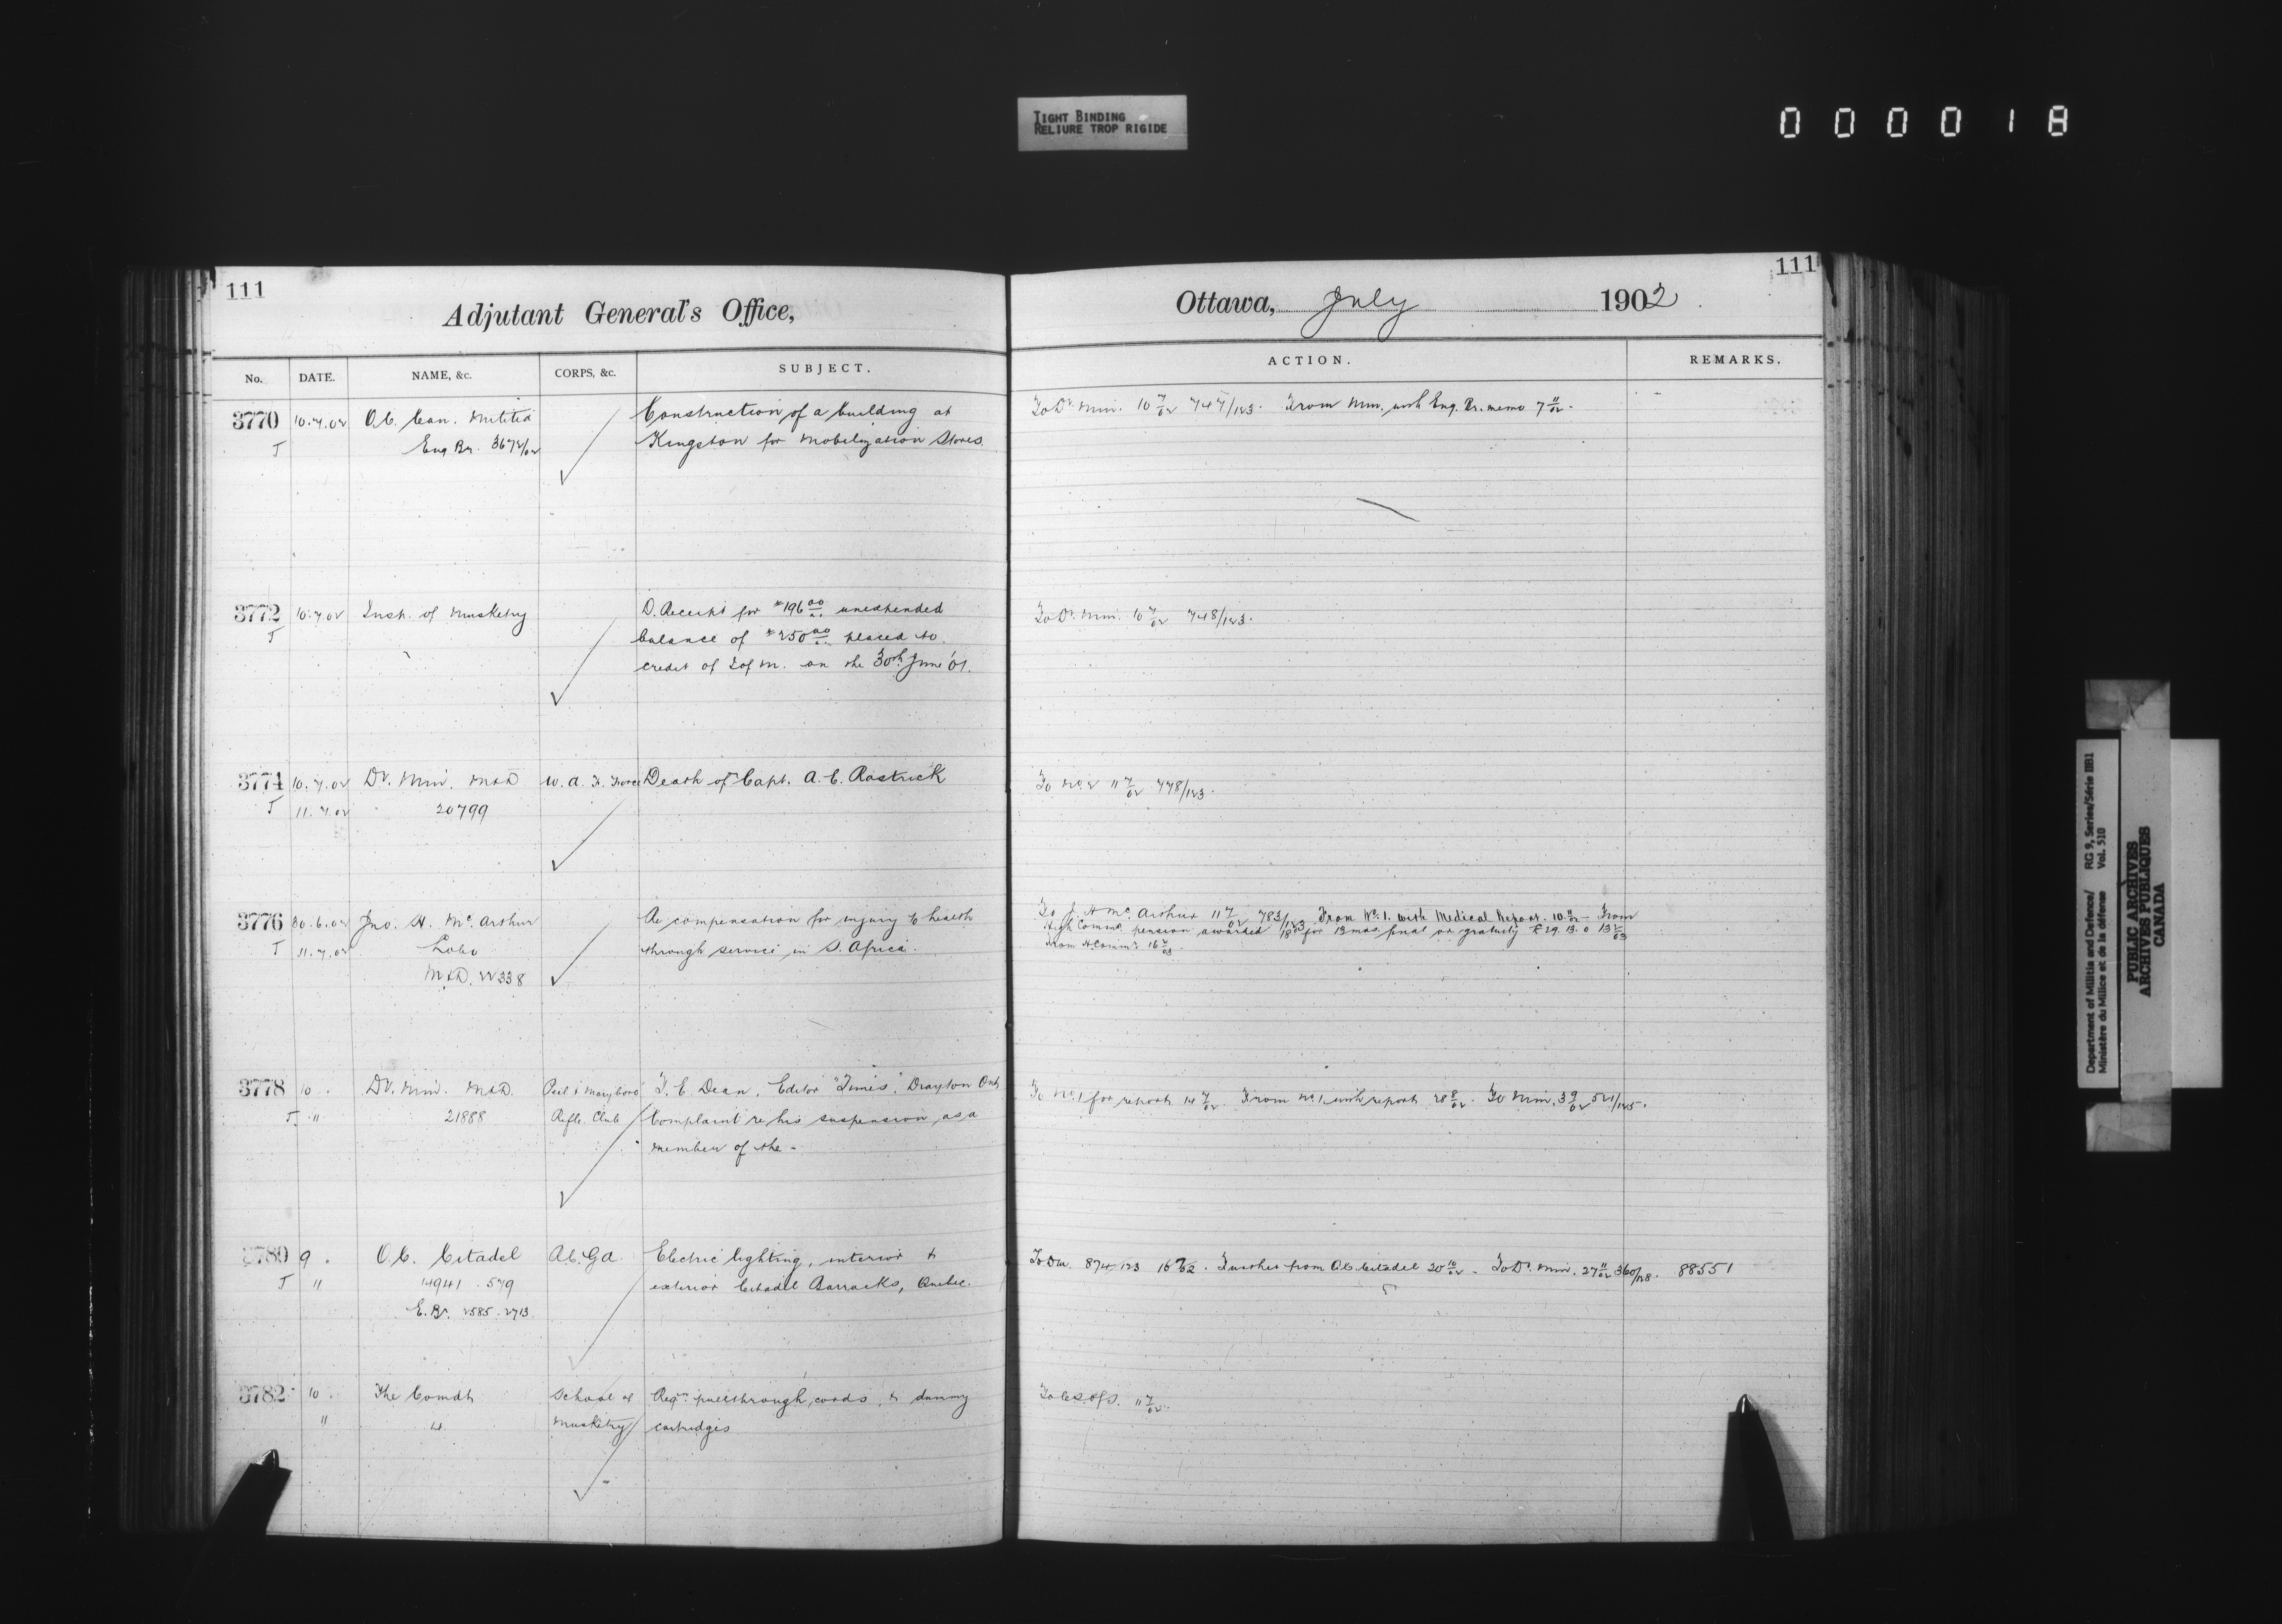 TIGHT BINDING
RELIURE TROP RIGIDE
000018
111
Adjutant General's Office,
No. DATE. NAME, &c. CORPS, &c. SUBJECT.
3770 10.7.02 O.C. Can. Militia Construction of a building at
J Eng Br. 3672/02 Kingston for Mobilization Stores.
3772 10.7.02 Insp. of Musketry D. Receipt for $196.00 unexpended
J balance of $250.00 placed to
credit of I of M. on the 30th June '01.
3774 10.7.02 Dy. Min. M&D W.A.F. Force Death of Capt. A. E. Rastrick
J 11.7.02 20799
3776 30.6.02 Jno. H. McArthur Re compensation for injury to health
J 11.7.02 Lobo through service in S. Africa.
M&D. 22338
3778 10 Dy. Min. M&D. Peel & Maryboro T. E. Dean, Editor "Times", Drayton Ont
J " 21888 Rifle Club Complaint re his suspension as a
member of the -
3780 9 O.C. Citadel R.C.G.A. Electric lighting, interior &
J " 14941 . 579 exterior Citadel Barracks, Quebec.
E. Br. 2585 . 2713
3782 10 The Comdt School of Reqn. pullthrough, cords, & dummy
" Musketry cartridges
111
Ottawa, July 1902
ACTION. REMARKS.
To Dy. Min. 10 7/02 747/123. From Min. with Eng. Br. memo 7 11/02.
To Dy. Min. 10 7/02 748/123.
To No. 2 11 7/02 778/123.
To J. H. McArthur 11 7/02 783/123 From No. 1. with Medical Report. 10. 11/02 - From
High Commr. pension awarded 18d for 12 mos. final or gratuity £29. 13. 0
From H Commr. 16
To No. 1 for report 14 7/02. From No. 1 with report 28 8/02. To Min. 3 9/02 521/125.
To DM. 874-123 16 7/02. Further from O.C. Citadel 20 10/02. To Dy. Min. 27 11/02 360/128. 88551
To C.S. of S. 11 7/02.
Department of Militia and Defence/ RG 9, Series/Série IIB1
Ministère du Milice et de la défense Vol. 510
PUBLIC ARCHIVES
ARCHIVES PUBLIQUES
CANADA